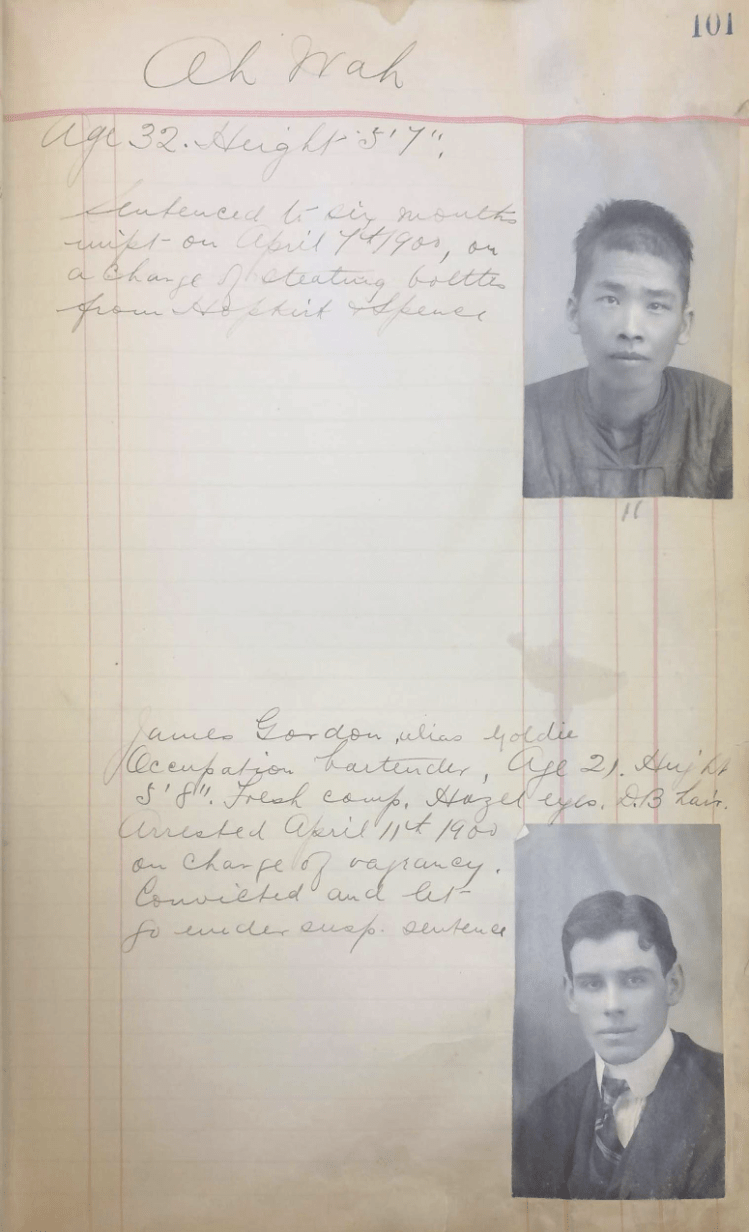 101
Ah Wah
Age 32. Height 5'7".
Sentenced to six months
impt on April 7th 1900, on
a charge of steating bottles
from Hopkirt & Spence
11
James Gordon, alias Goldie
Occupation bartender, Age 21. Height
5'8". Fresh comp. Hazel eyes. D.B hair.
Arrested April 11th 1900
on charge of vagrancy.
Convicted and let
go under susp. sentence